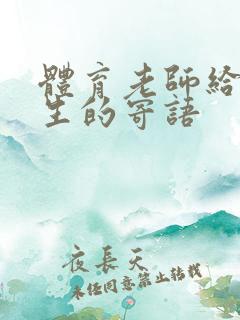 體育老師給
生的寄語
夜長天
未經同意禁止轉載